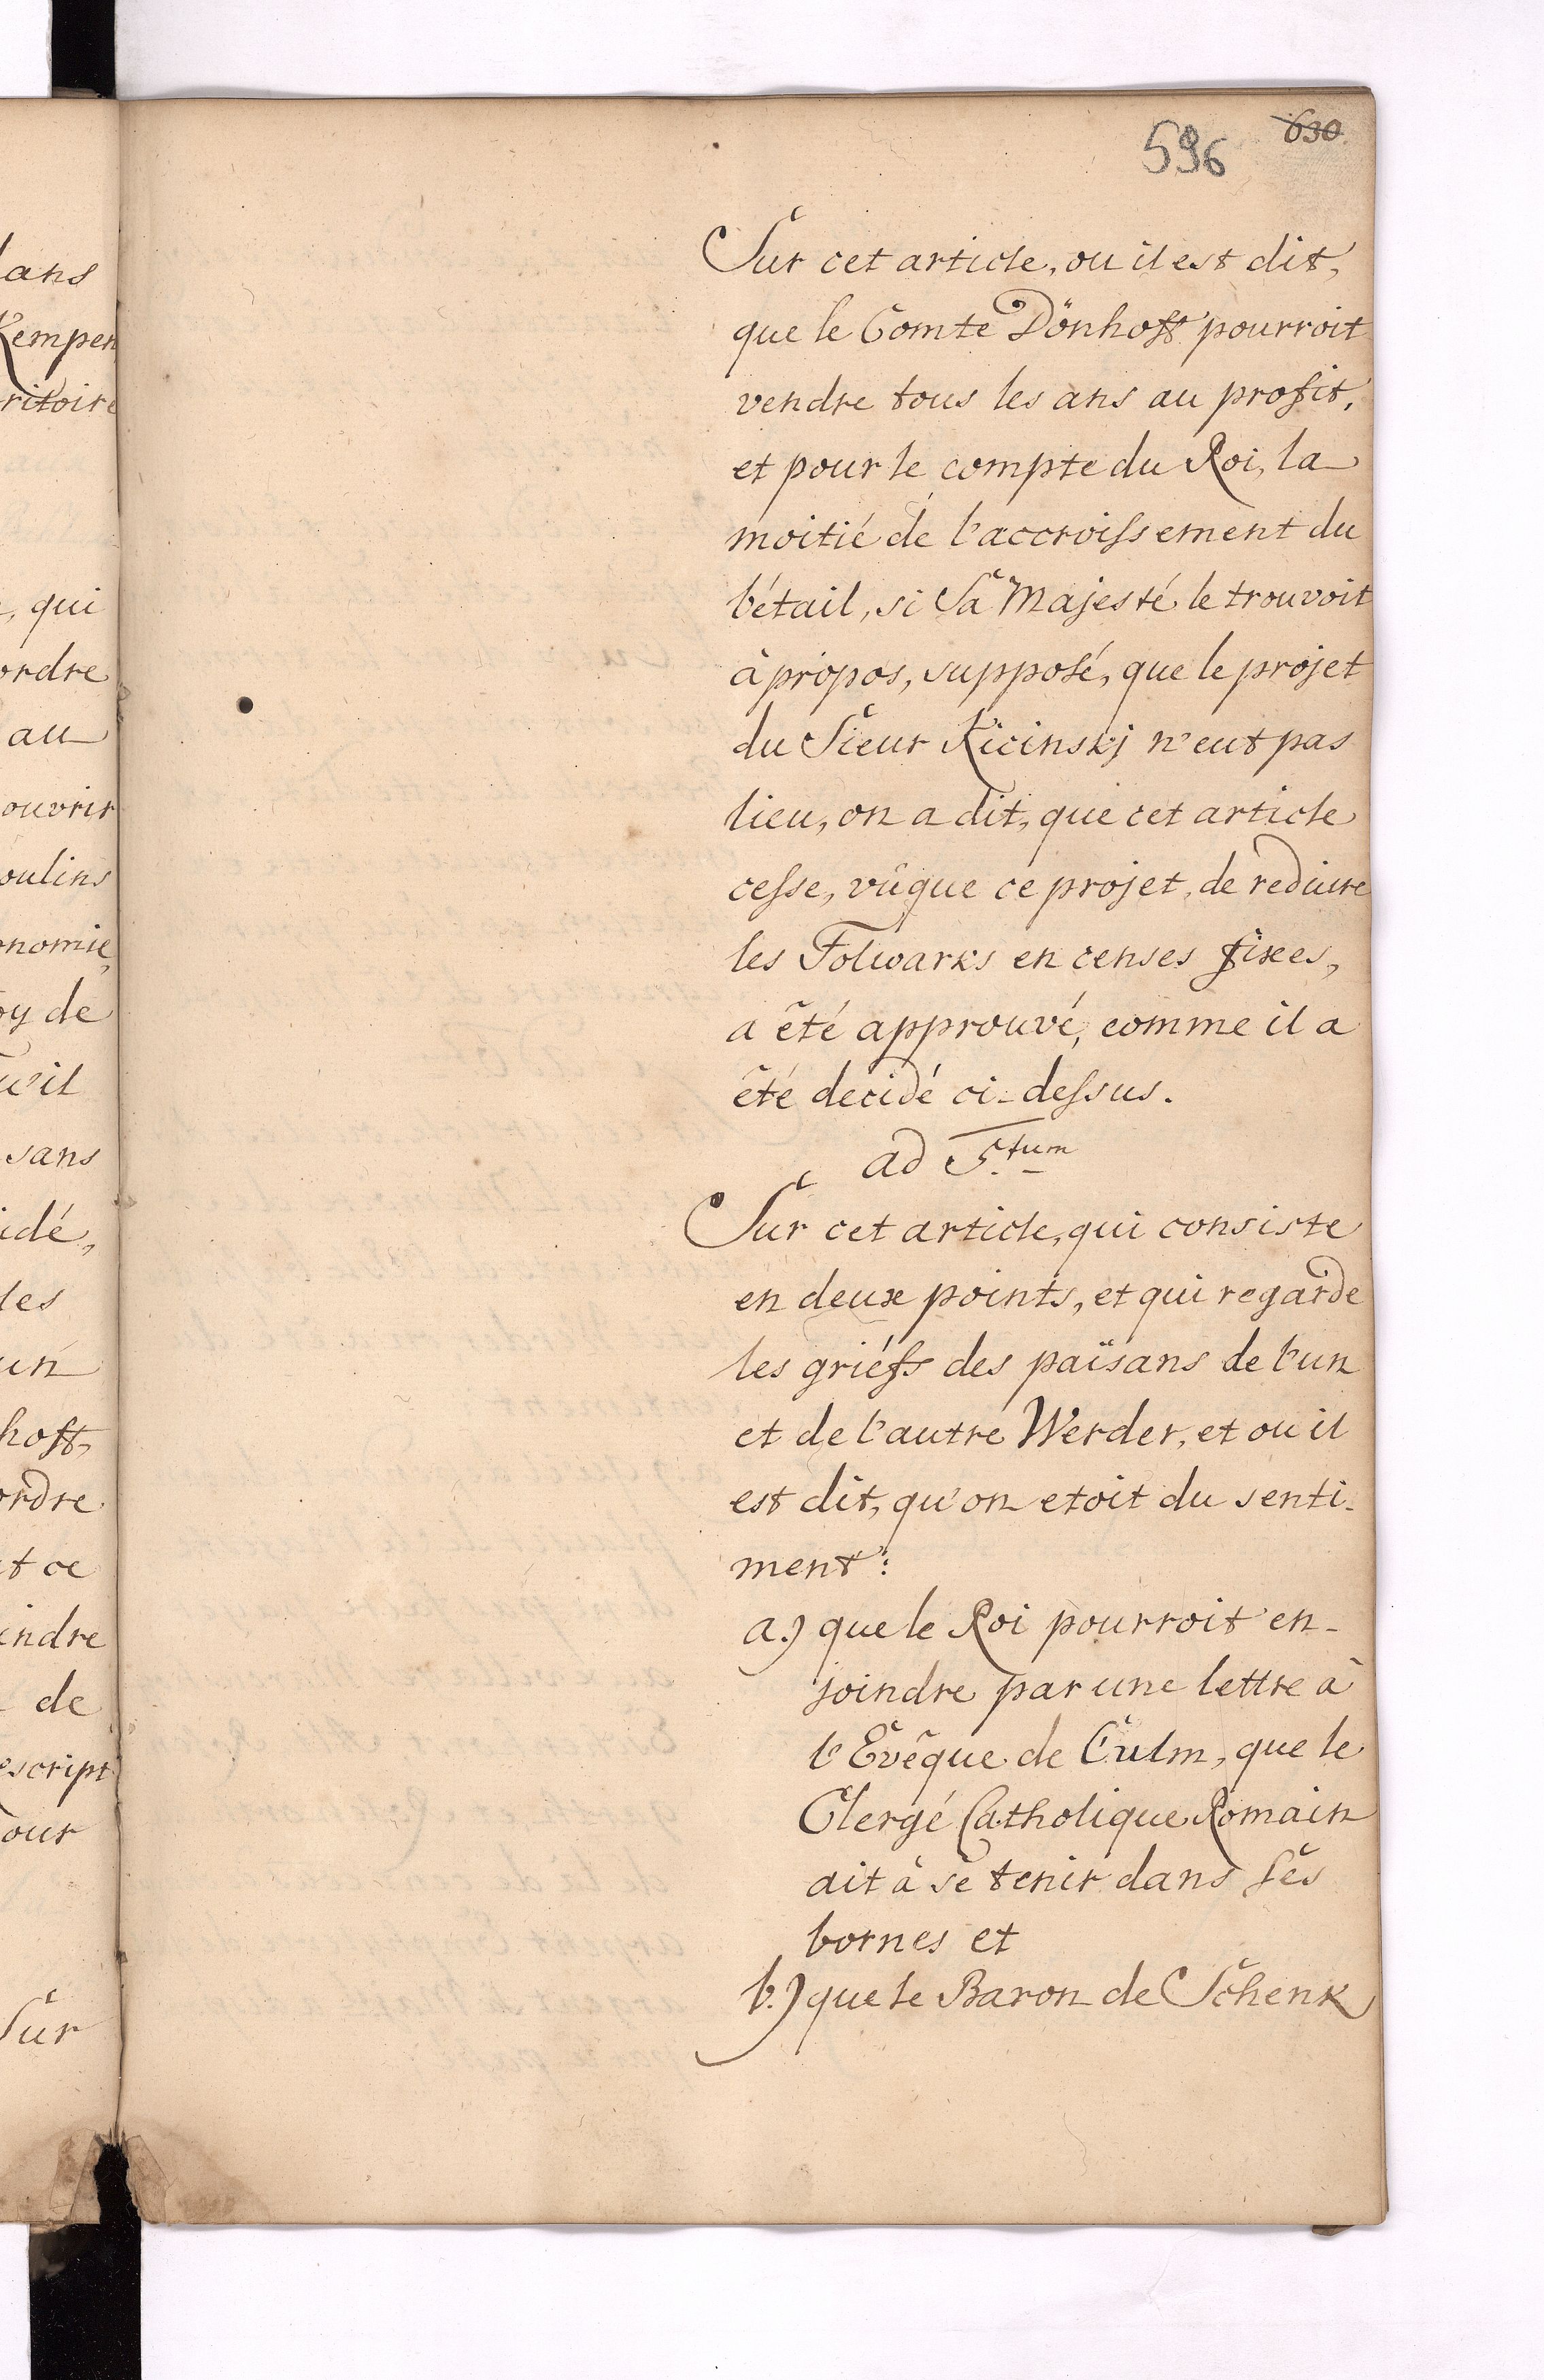 596 630.
Sur cet article, ou il est dit,
que le Comte Dönhoff pourroit
vendre tous les ans au profit,
et pour le compte du Roi, la
moitié de l'accroissement du
bétail, si Sa Majesté le trouvoit
à propos, supposé, que le projet
du Sieur Kicinskj n'eut pas
lieu, on a dit, que cet article
cesse, vûque ce projet, de reduire
les Folwarks en censes fixes,
a êté approuvé, comme il a
êté decidé ci-dessus.
ad 5.tum
Sur cet article, qui consiste
en deux points, et qui regarde
les griéfs des païsans de l'un
et de l'autre Werder, et ou il
est dit, qu'on etoit du senti-
ment:
a.) que le Roi pourroit en-
joindre par une lettre à
l'Evêque de Culm, que le
Clergé Catholique Romain
ait à se tenir dans ses
bornes et
b.) que le Baron de Schenk
lans
Kempen
ritoire
, qui
ordre
au
ouvrir
oulins
onomie,
oy de
u'il
sans
idé,
les
un
hoff,
ordre
t ce
indre
de
escript
our
Sur